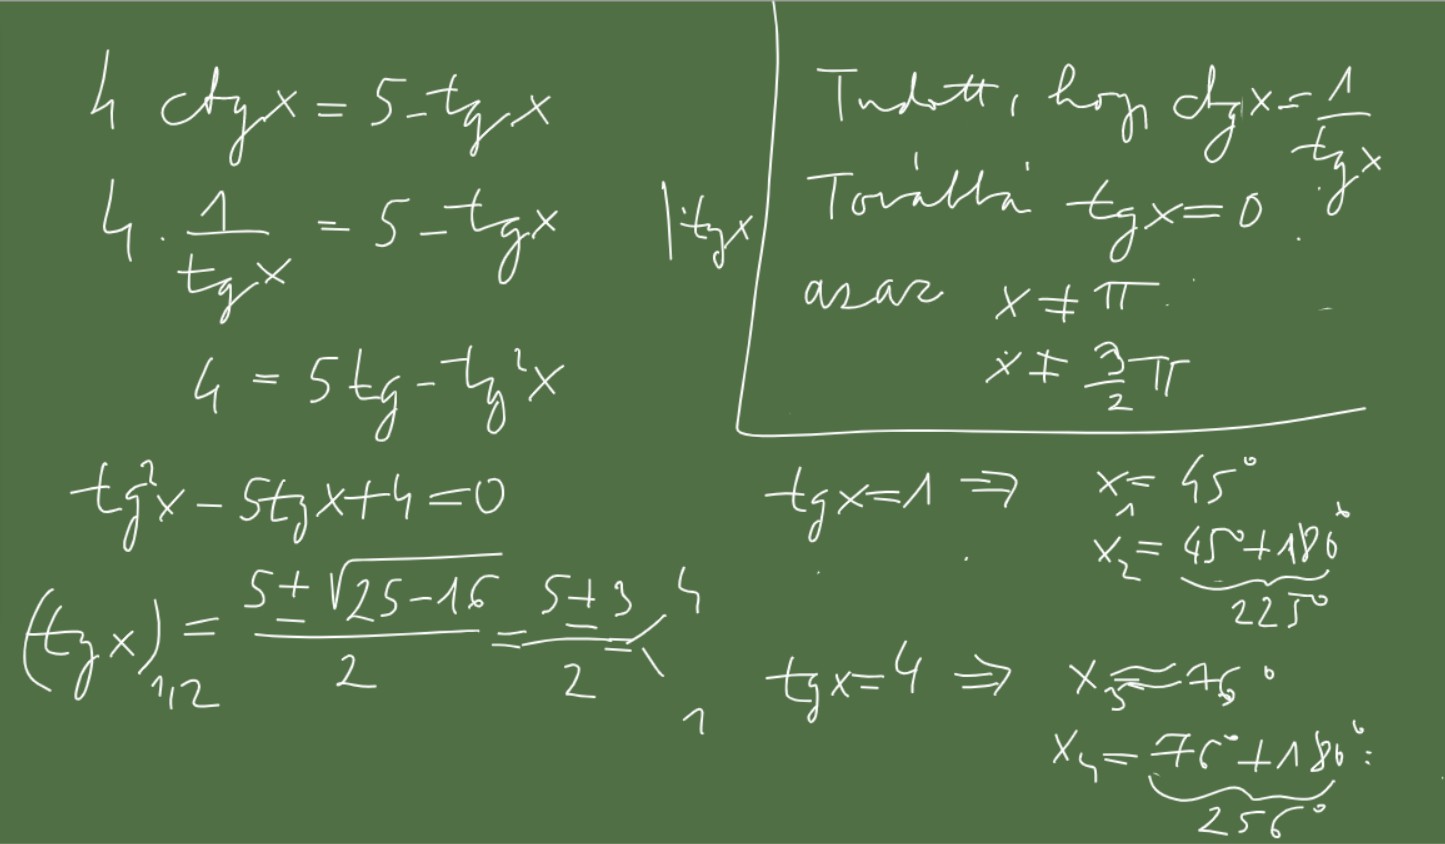 4 ctgx = 5 - tgx
4 · 1/tgx = 5 - tgx |·tgx
4 = 5tg - tg²x
tg²x - 5tgx + 4 = 0
(tgx)₁,₂ = (5 ± √25-16)/2 = (5 ± 3)/2 = 4
1
Tudott, hogy ctgx = 1/tgx
Továbbá tgx = 0
azaz x ≠ π
x ≠ 3/2 π
tgx = 1 ⇒ x₁ = 45°
x₂ = 45° + 180°
225°
tgx = 4 ⇒ x₃ ≈ 76°
x₄ = 76° + 180°
256°